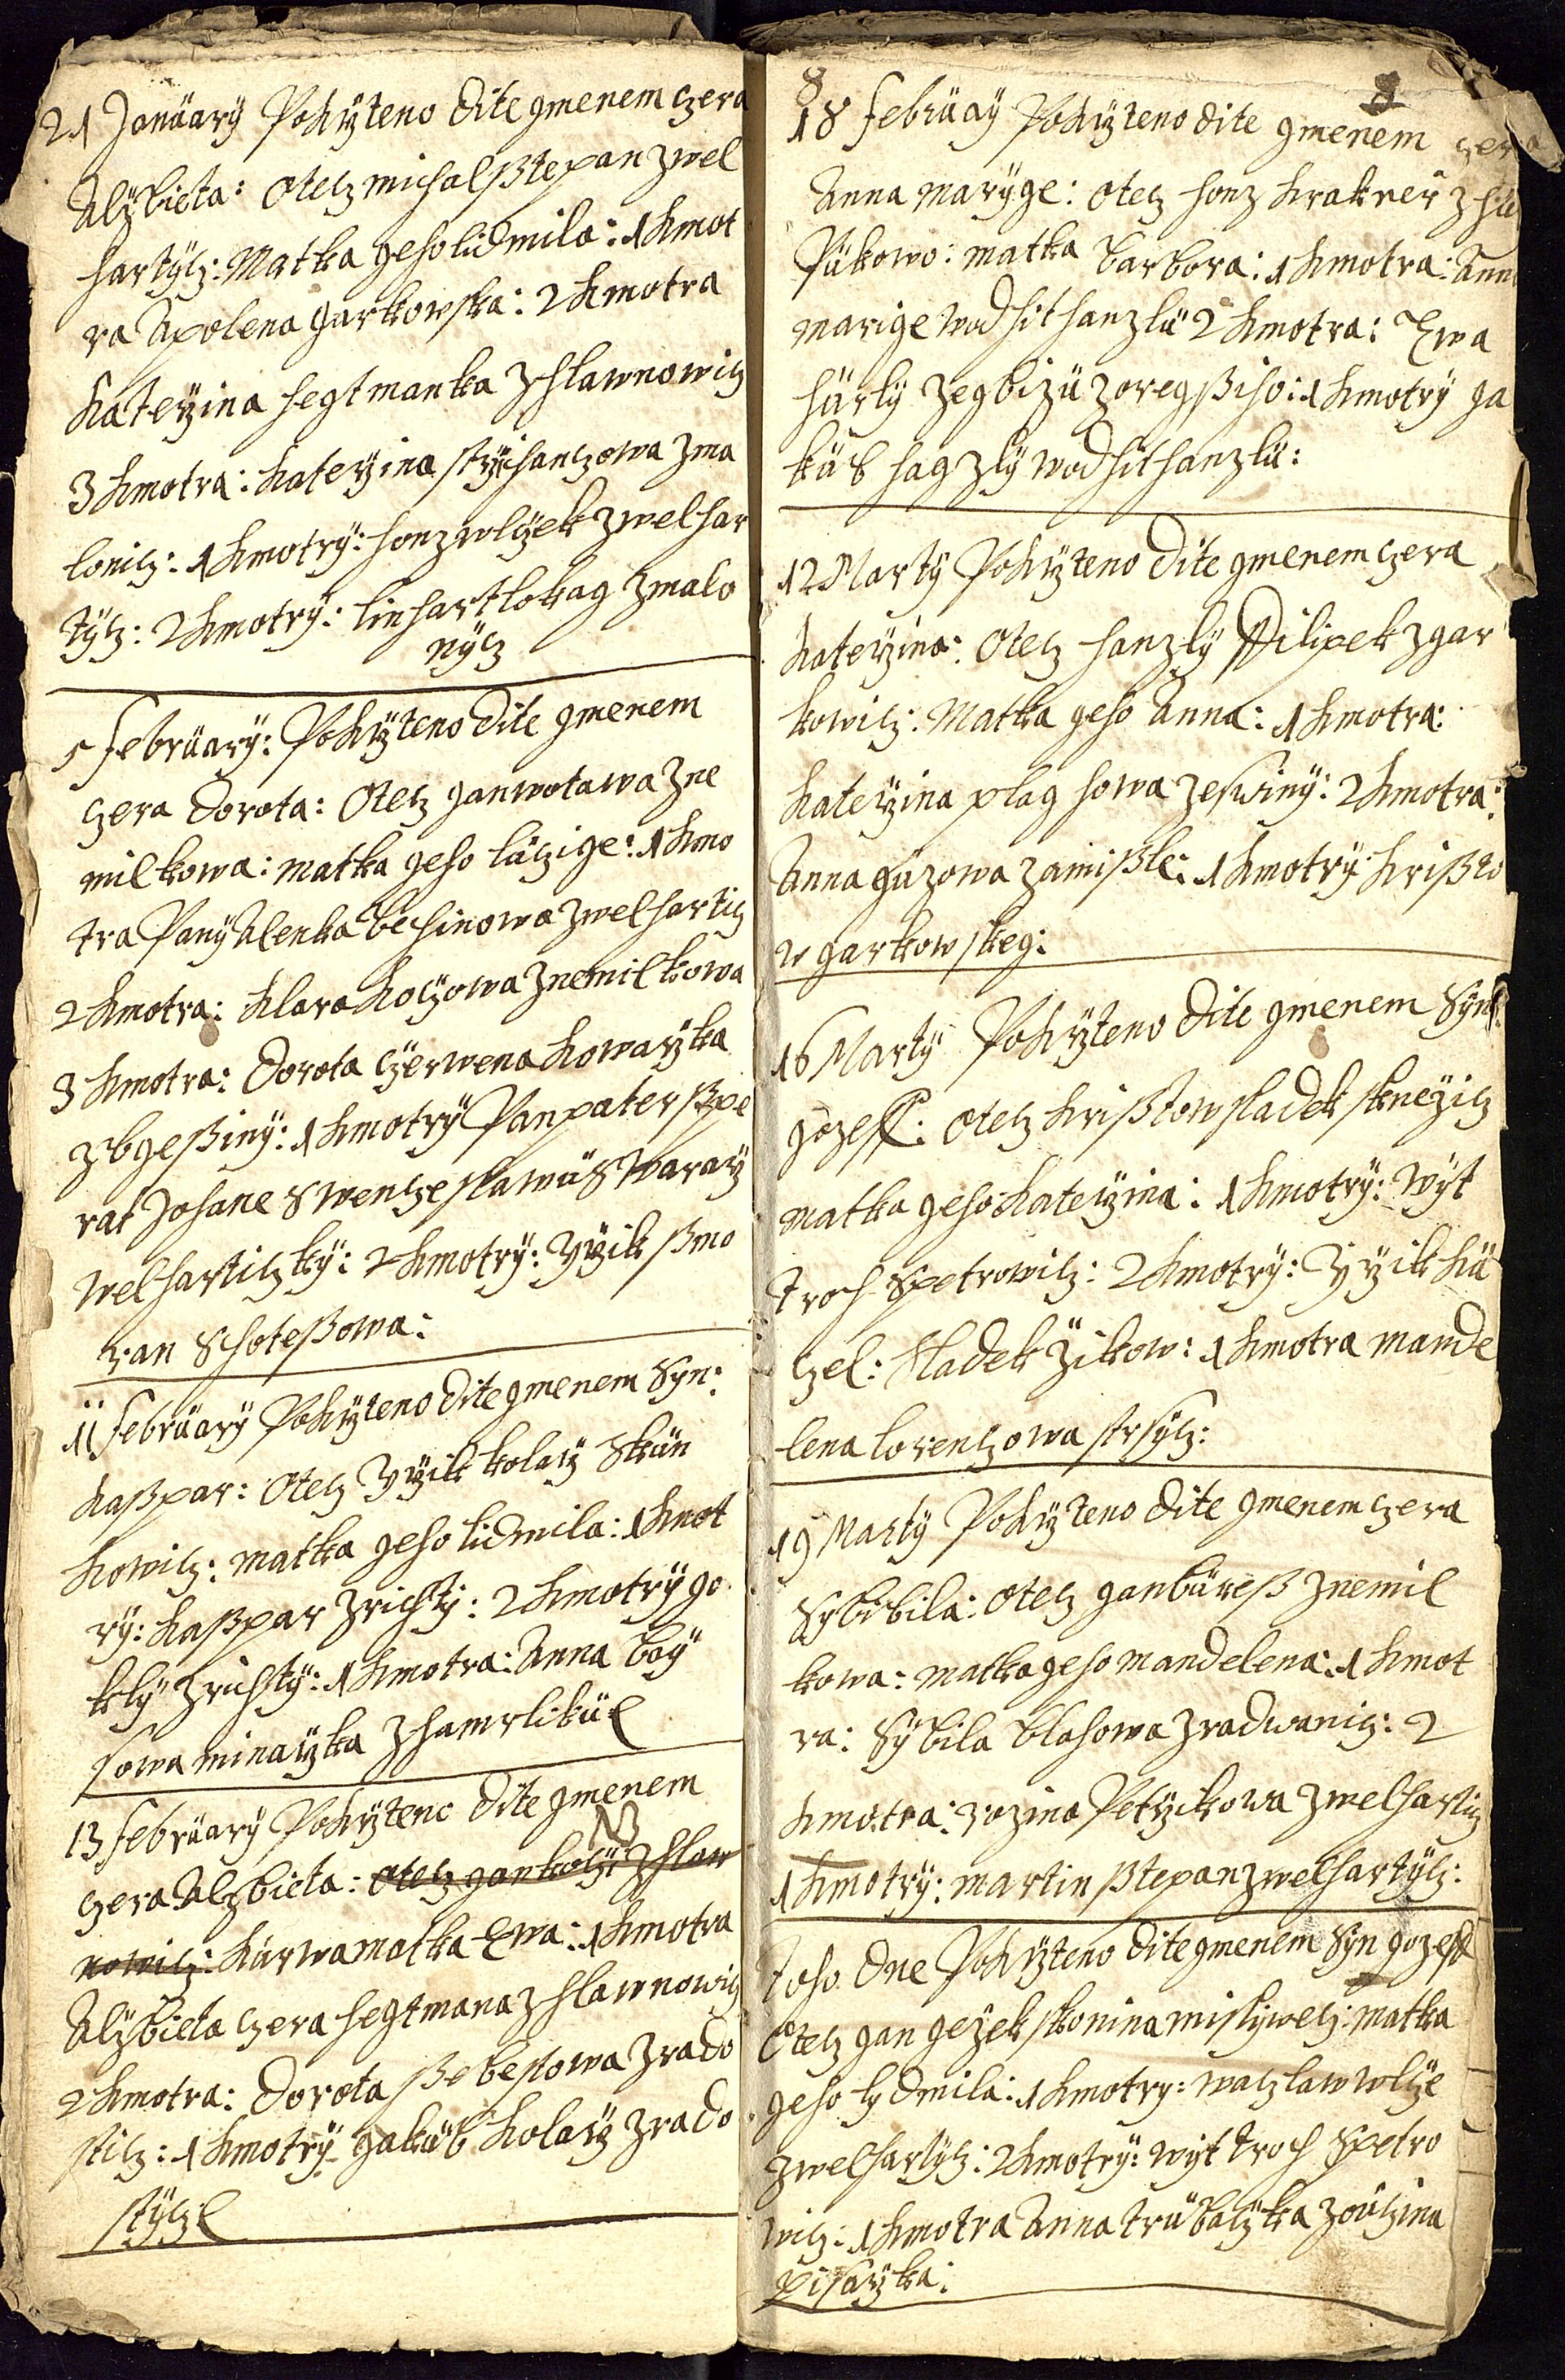 21 Janüarÿ Pokrzteno dite gmenem czera
Alzbieta: otecz michal sstepan zwel
hartÿcz: Matka geho lidmila: 1 kmot
ra Apolena garkowska: 2 kmotra
katerzina hegtmanka z hlawnowicz
3 kmotra: katerzina strÿhanczowa zma
lonicz: 1 kmotrÿ: honz wlczek zwelhar
tÿcz: 2 kmotrÿ: linhart lokag zmalo
nÿcz
5 februarÿ: Pokrzteno dite gmenem
czera dorota: otecz gan wotawa zne
milkowa: matka geho lüczige: 1 kmo
tra Panÿ Alenka bechinowa zwelharticz
2 kmotra: klara koczowa znemilkowa
3 kmotra: dorota czerwena kowarzka
zbgessinÿ: 1 kmotrÿ Pan pater sspe
rat Johanes wenczeslawüs wararz
welharticzkÿ: 2 kmotrÿ: Yrzik ssmo
czan Schotessowa:
11 februarÿ Pokrzteno dite gmenem Syn:
kasspar: otecz Yrzik kolarz skün
kowicz: matka geho lidmila: 1 kmot
rÿ: kasspar zrichtÿ: 2 kmotrÿ go
klÿ zrichtÿ: 1 kmotra: Anna boÿ
sowa minarzka z hamrlikü
13 februarÿ Pokrzteno dite gmenem
czera Alzbieta: otecz gan koczi z hlaw
nowicz: kürwa matka Ewa: 1 kmotra
Alzbieta czera hegtmana z hlawnowicz
2 kmotra: dorota ssebestowa zrado
sticz: 1 kmotrÿ gakub kolarz zrado
stÿcz
8 8
18 februaÿ Pokrzteno dite gmenem czera
Anna marÿge: otecz honz krakner z hü
Pükowo: matka barbora: 1 kmotra: Anna
marige wod hithanzlü 2 kmotra: Ewa
hürlÿ zegbizü zoregssiho: 1 kmotrÿ ga
küb hagzlÿ wod hithanzlü:
12 Martÿ Pokrzteno dite gmenem czera
katerzina: otecz hanzlÿ ffilipek zgar
kowicz: Matka geho Anna: 1 kmotra:
katerzina plag howa zeswinÿ: 2 kmotra:
Anna güzowa zamissle: 1 kmotrÿ krissto
w garkowskeg:
16 Martÿ Pokrzteno dite gmenem Syn:
gozeff: otecz krisstow sladek sknezicz
matka geho katerzina: 1 kmotrÿ: Wÿt
troch spetrowicz: 2 kmotrÿ: Yrzik kü
czel: sladek žikow: 1 kmotra mande
lena lorenczowa strhÿcz:
19 Martÿ Pokrzteno dite gmenem czera
Sybibila: otecz gan büress znemil
kowa: matka geho mandelena: 1 kmot
ra: Sÿbila blahowa zradwanicz: 2
kmotra: rozina Petrzikowa zwelharticz
1 kmotrÿ: martin sstepan zwelhartÿcz:
toho dne Pokrzteno dite gmenem Syn gozeff
otecz gan gežek skonina misliwecz: matka
geho lydmila: 1 kmotry: waczlaw wlcze
zwelhartÿcz: 2 kmotrÿ: wÿt troch spetro
wicz: 1 kmotra Anna trübaczka zoüczina
pisarzka: